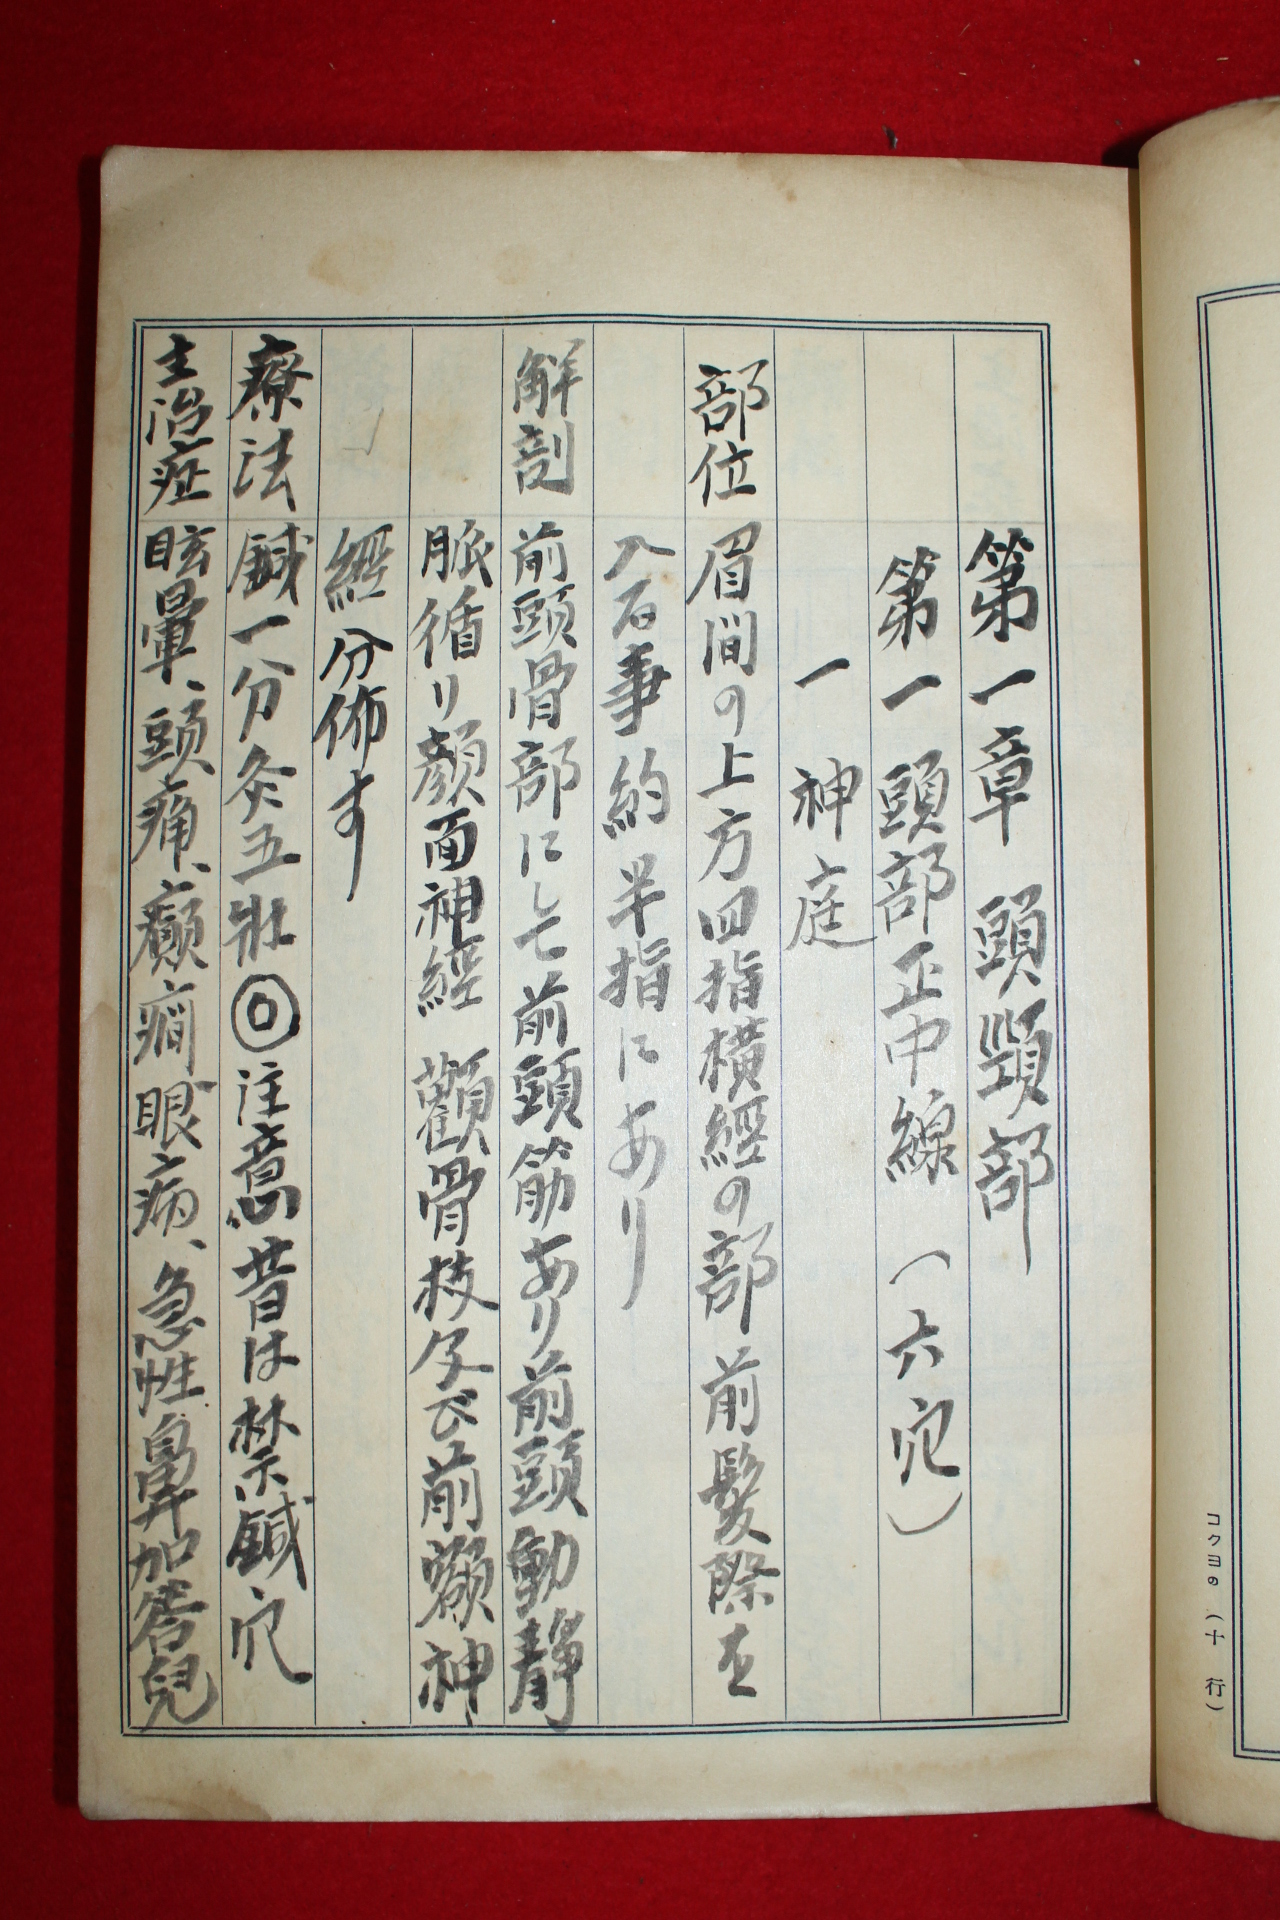 第一章　頭 部
第一　頭部正中線（六穴）
一　神庭
部位　眉間の上方四指横經の部前髪際を
入る事約半指にあり
解剖　前頭骨部にして前頭筋あり前頭動靜
脈循り顔面神經　顴骨枝及び前額神
經分佈す
療法　鍼一分灸五壯◎注意昔は禁鍼穴
主治症　眩暈、頭痛、癲癇眼病、急性鼻加答兒
コクヨの（十行）